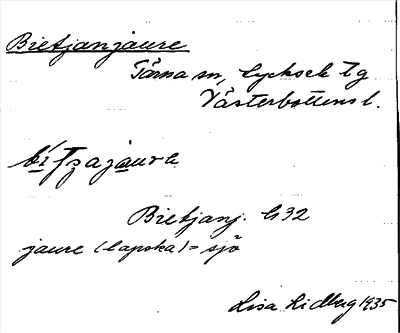 Bietjanjaure
Tärna sn, Lycksele tg
Västerbottens l.
Bietjanj. G32
jaure (lapska) = sjö
Lisa Lidberg 1935